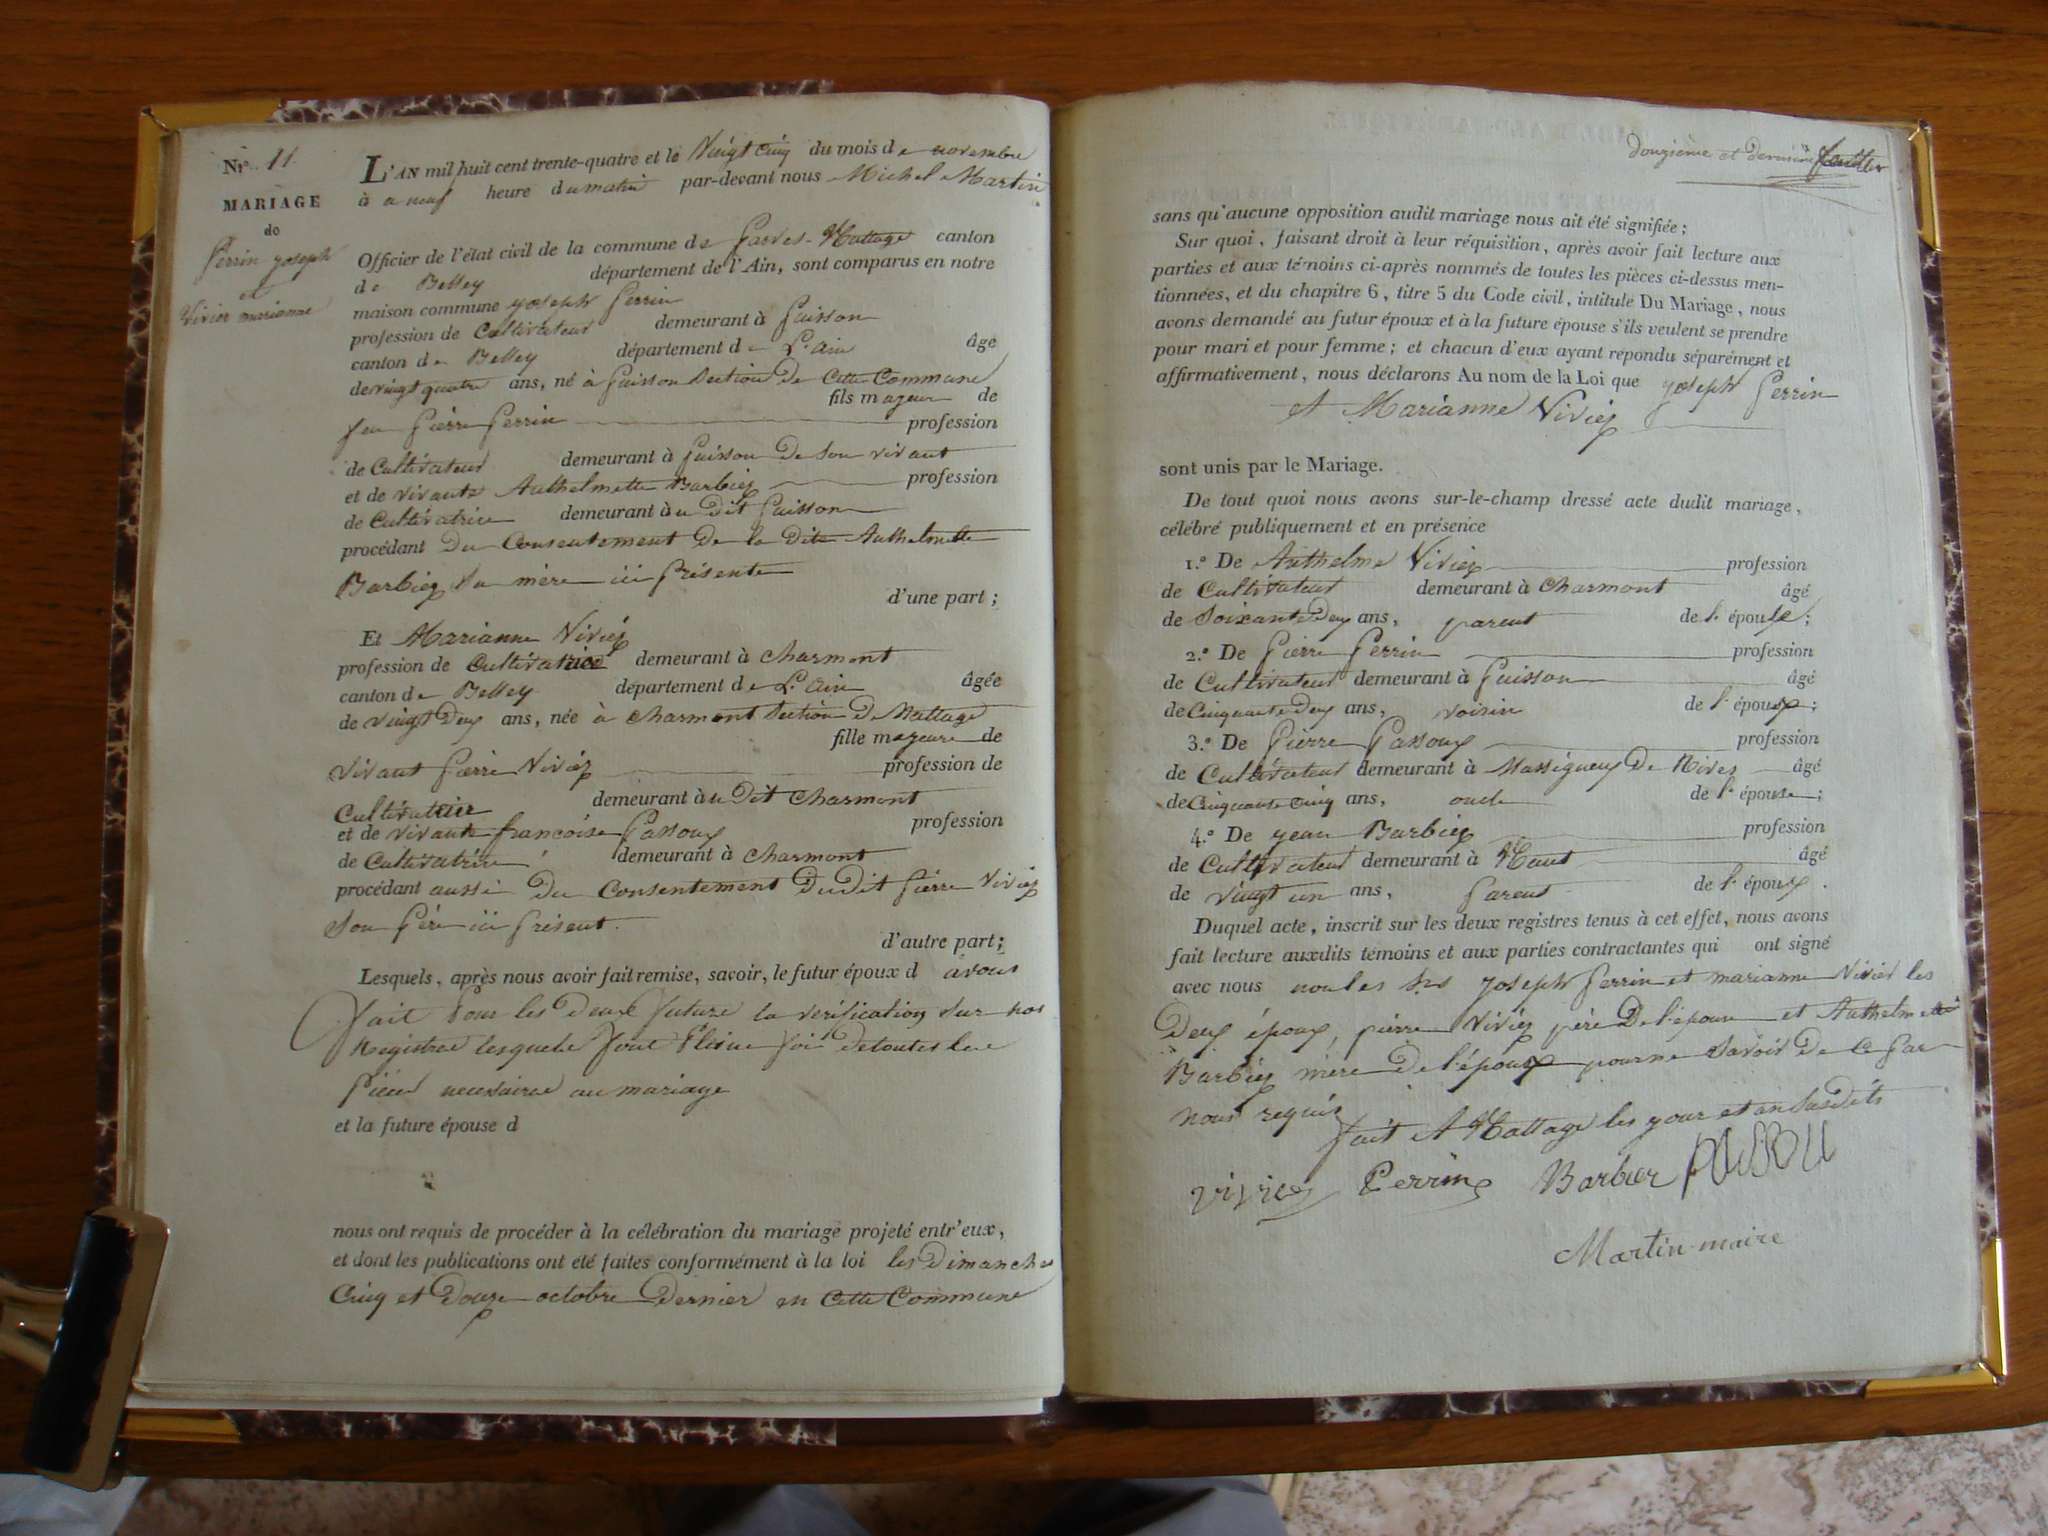 N.º 11
MARIAGE
de
Perrin joseph
et
Vivier marianne
L'AN mil huit cent trente-quatre et le Vingt cinq du mois de novembre
à a neuf heure du matin par-devant nous Michel Martin
Officier de l'état civil de la commune de Parves-Nattage canton
de Belley département de l'Ain, sont comparus en notre
maison commune joseph Perrin
profession de Cultivateur demeurant à Puisson
canton de Belley département de L'ain âgé
de vingt quatre ans, né à Puisson Section De Cette Commune
fils majeur de
feu Pierre Perrin profession
de Cultivateur demeurant à Puisson De Son vivant
et de vivante Anthelmette Barbiez profession
de Cultivatrice demeurant au Dit Puisson
procédant Du Consentement De la Dite Anthelmette
Barbiez Sa mère ici Présente
d'une part ;
Et Marianne Viviez
profession de Cultivatrice demeurant à Charmont
canton de Belley département de L'ain âgée
de vingt Deux ans, née à Charmont Section De Nattage
fille majeure de
vivant Pierre Viviez profession de
Cultivateur demeurant au Dit Charmont
et de vivante francoise Passoux profession
de Cultivatrice demeurant à Charmont
procédant aussi Du Consentement Dudit Pierre Viviez
Son Père ici Présent.
d'autre part ;
Lesquels, après nous avoir fait remise, savoir, le futur époux d avons
fait Pour les Deux future la vérification Sur nos
Registres lesquels font Pleine foi De toutes les
Pièces necessaires au mariage
et la future épouse d
nous ont requis de procéder à la célébration du mariage projeté entr'eux,
et dont les publications ont été faites conformément à la loi les Dimanches
Cinq et Douze octobre Dernier en Cette Commune
douzième et dernier feuillet
sans qu'aucune opposition audit mariage nous ait été signifiée ;
Sur quoi, faisant droit à leur réquisition, après avoir fait lecture aux
parties et aux témoins ci-après nommés de toutes les pièces ci-dessus men-
tionnées, et du chapitre 6, titre 5 du Code civil, intitulé Du Mariage, nous
avons demandé au futur époux et à la future épouse s'ils veulent se prendre
pour mari et pour femme ; et chacun d'eux ayant répondu séparément et
affirmativement, nous déclarons Au nom de la Loi que joseph Perrin
et Marianne Viviez
sont unis par le Mariage.
De tout quoi nous avons sur-le-champ dressé acte dudit mariage,
célébré publiquement et en présence
1.º De Anthelme Viviez profession
de Cultivateur demeurant à Charmont âgé
de Soixante Deux ans, parent de l'épouse ;
2.º De Pierre Perrin profession
de Cultivateur demeurant à Puisson âgé
de Cinquante Deux ans, voisin de l'époux ;
3.º De Pierre Passoux profession
de Cultivateur demeurant à Massigneux De Rives âgé
de Cinquante cinq ans, oncle de l'épouse ;
4.º De jean Barbiez profession
de Cultivateur demeurant à âgé
de vingt un ans, Parent de l'époux.
Duquel acte, inscrit sur les deux registres tenus à cet effet, nous avons
fait lecture auxdits témoins et aux parties contractantes qui ont signé
avec nous non les joseph Perrin et marianne Vivier les
Deux époux, pierre Viviez père De l'épouse et Anthelmette
Barbiez mère De l'époux pour ne Savoir De Ce Par
nous requis
fait A Nattage les jour et an Susdits
viviez Perrin Barbier PASSOU
Martin maire